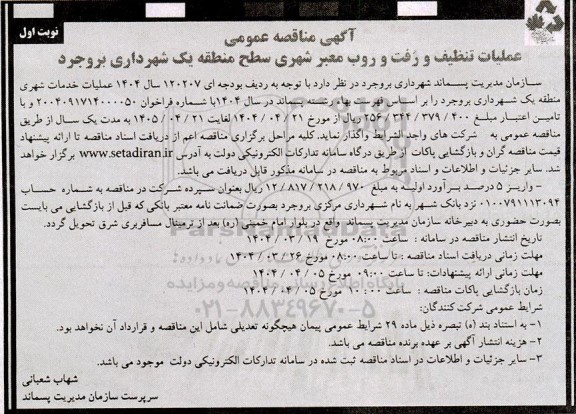 نوبت اول
آگهی مناقصه عمومی
عملیات تنظیف و رُفت و روب معبر شهری سطح منطقه یک شهرداری بروجرد
سازمان مدیریت پسماند شهرداری بروجرد در نظر دارد با توجه به ردیف بودجه ای ۱۲۰۲۰۷ سال ۱۴۰۴ عملیات خدمات شهری
منطقه یک شهرداری بروجرد را بر اساس فهرست بهای پسماند در سال ۱۴۰۴با شماره فراخوان ۲۰۰۴۰۹۱۷۱۴۰۰۰۰۵۰ و با
تامین اعتبار مبلغ ۲۵۶/۳۴۴/۳۷۹/۴۰۰ ریال از مورخ ۱۴۰۴/۰۴/۲۱ لغایت ۱۴۰۵/۰۴/۲۱ به مدت یک سال از طریق
مناقصه عمومی به شرکت های واجد الشرایط واگذار نماید. کلیه مراحل برگزاری مناقصه اعم از دریافت اسناد مناقصه تا ارائه پیشنهاد
قیمت مناقصه گران و بازگشایی پاکات ازطریق درگاه سامانه تدارکات الکترونیکی دولت به آدرس www.setadiran.ir برگزار خواهد
شد. سایر جزئیات و اطلاعات و اسناد مربوط به مناقصه در سامانه مذکور قابل دریافت می باشد.
- واریز ۵ درصد برآورد اولیه به مبلغ ۱۲/۸۱۷/۲۱۸/۹۷۰ ریال بعنوان سپرده شرکت در مناقصه به شماره حساب
۰۱۰۰۷۹۱۱۱۳۰۹۴ نزد بانک شهر به نام شهرداری مرکزی بروجرد بصورت ضمانت نامه معتبر بانکی که قبل از بازگشایی می بایست
بصورت حضوری به دبیرخانه سازمان مدیریت پسماند واقع در بلوار امام خمینی (ره) بعد از ترمینال مسافربری شرق تحویل گردد.
تاریخ انتشار مناقصه در سامانه : ساعت ۰۸:۰۰ مورخ ۱۴۰۴/۰۳/۱۹
مهلت زمانی دریافت اسناد مناقصه : تا ساعت ۰۸:۰۰ مورخ ۱۴۰۴/۰۳/۲۶
مهلت زمانی ارائه پیشنهادات: تا ساعت ۰۹:۰۰ مورخ ۱۴۰۴/۰۴/۰۵
زمان بازگشایی پاکات مناقصه : ساعت ۱۰:۰۰ مورخ ۱۴۰۴/۰۴/۰۵
شرایط عمومی شرکت کنندگان:
۱- به استناد بند (ه) تبصره ذیل ماده ۲۹ شرایط عمومی پیمان هیچگونه تعدیلی شامل این مناقصه و قرارداد آن نخواهد بود.
۲- هزینه انتشار آگهی بر عهده برنده مناقصه می باشد.
۳- سایر جزئیات و اطلاعات در اسناد مناقصه ثبت شده در سامانه تدارکات الکترونیکی دولت موجود می باشد.
شهاب شعبانی
سرپرست سازمان مدیریت پسماند
ParsNamadData
پایگاه اطلاع رسانی مناقصه و مزایده
۰۲۱-۸۸۳۴۹۶۷۰-۵